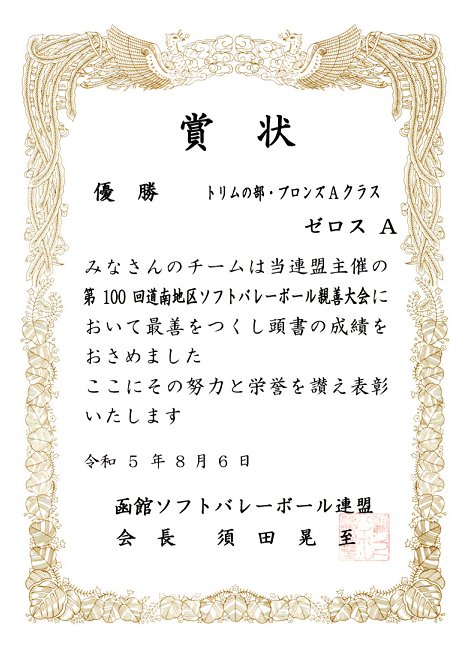 賞状
優勝 トリムの部・ブロンズAクラス
ゼロス A
みなさんのチームは当連盟主催の
第100回道南地区ソフトバレーボール親善大会に
おいて最善をつくし頭書の成績を
おさめました
ここにその努力と栄誉を讃え表彰
いたします
令和 5 年 8 月 6 日
函館ソフトバレーボール連盟
会長 須田晃至